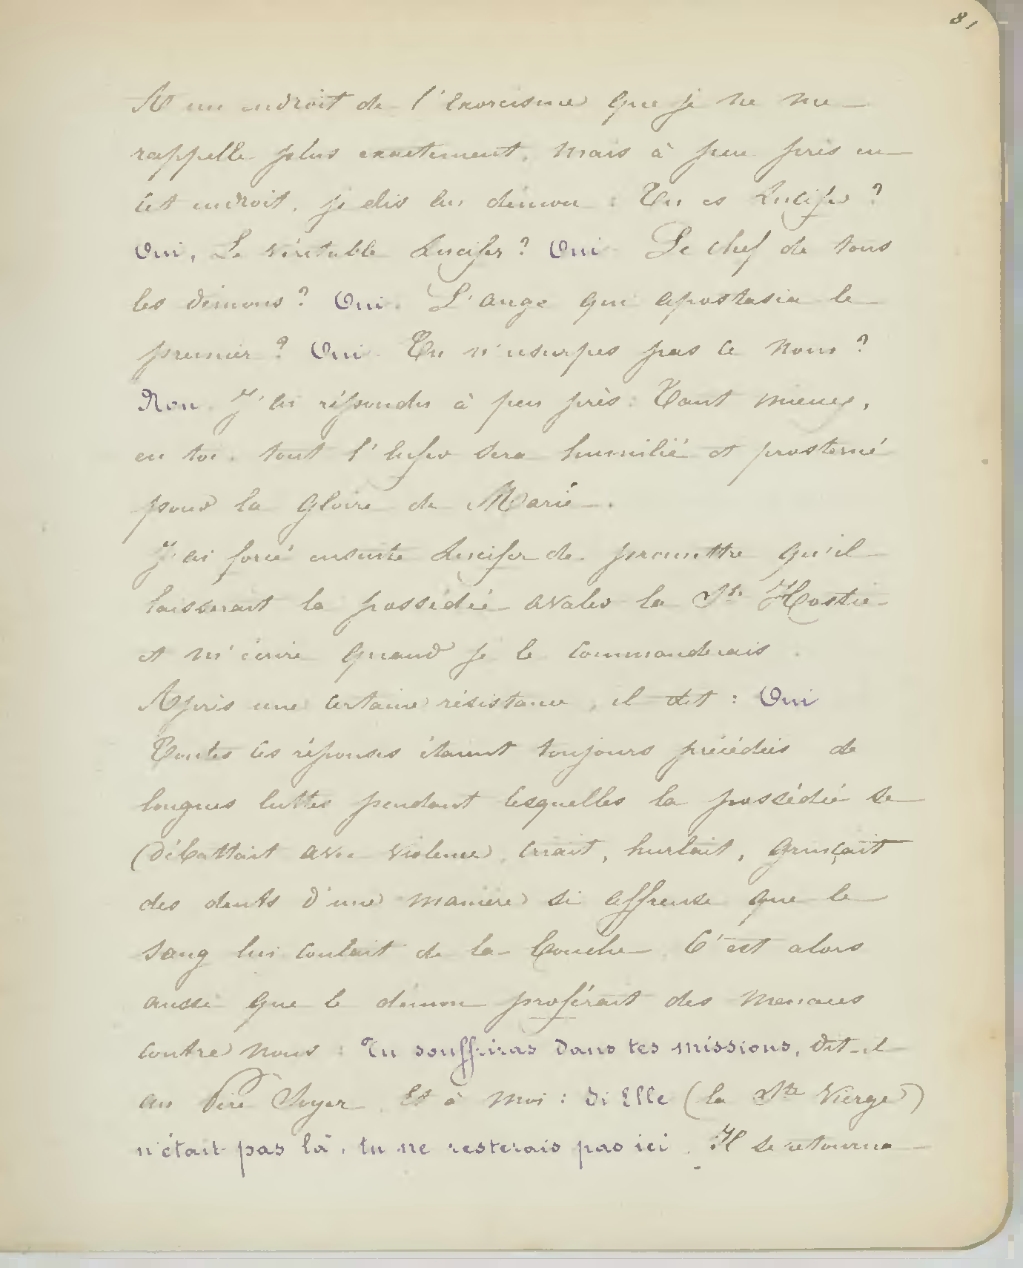 81
A un endroit de l'Exorcisme que je ne me
rappelle plus exactement, mais à peu près en
cet endroit, je dis au démon : Tu es Lucifer ?
Oui, Le véritable Lucifer ? Oui. Le chef de tous
les démons ? Oui. L'ange qui apostasia le
premier ? Oui. Tu n'usurpes pas ce nom ?
Non. J'ai répondu à peu près : Tant mieux,
en toi, tout l'Enfer sera humilié et prosterné
pour la gloire de Marie.
J'ai forcé ensuite Lucifer de promettre qu'il
laisserait la possédée avaler la Ste Hostie
et m'écrire quand je le commanderais.
Après une certaine résistance, il dit : Oui
Toutes ces réponses étaient toujours précédées de
longues luttes pendant lesquelles la possédée se
débattait avec violence, criait, hurlait, grinçait
des dents d'une manière si affreuse que le
sang lui coulait de la bouche. C'est alors
aussi que le démon proférait des menaces
contre nous : Tu souffriras dans tes missions, dit-il
au Père. Et à moi : Si Elle (la Ste Vierge)
n'était pas là, tu ne resterais pas ici. Il se retourna